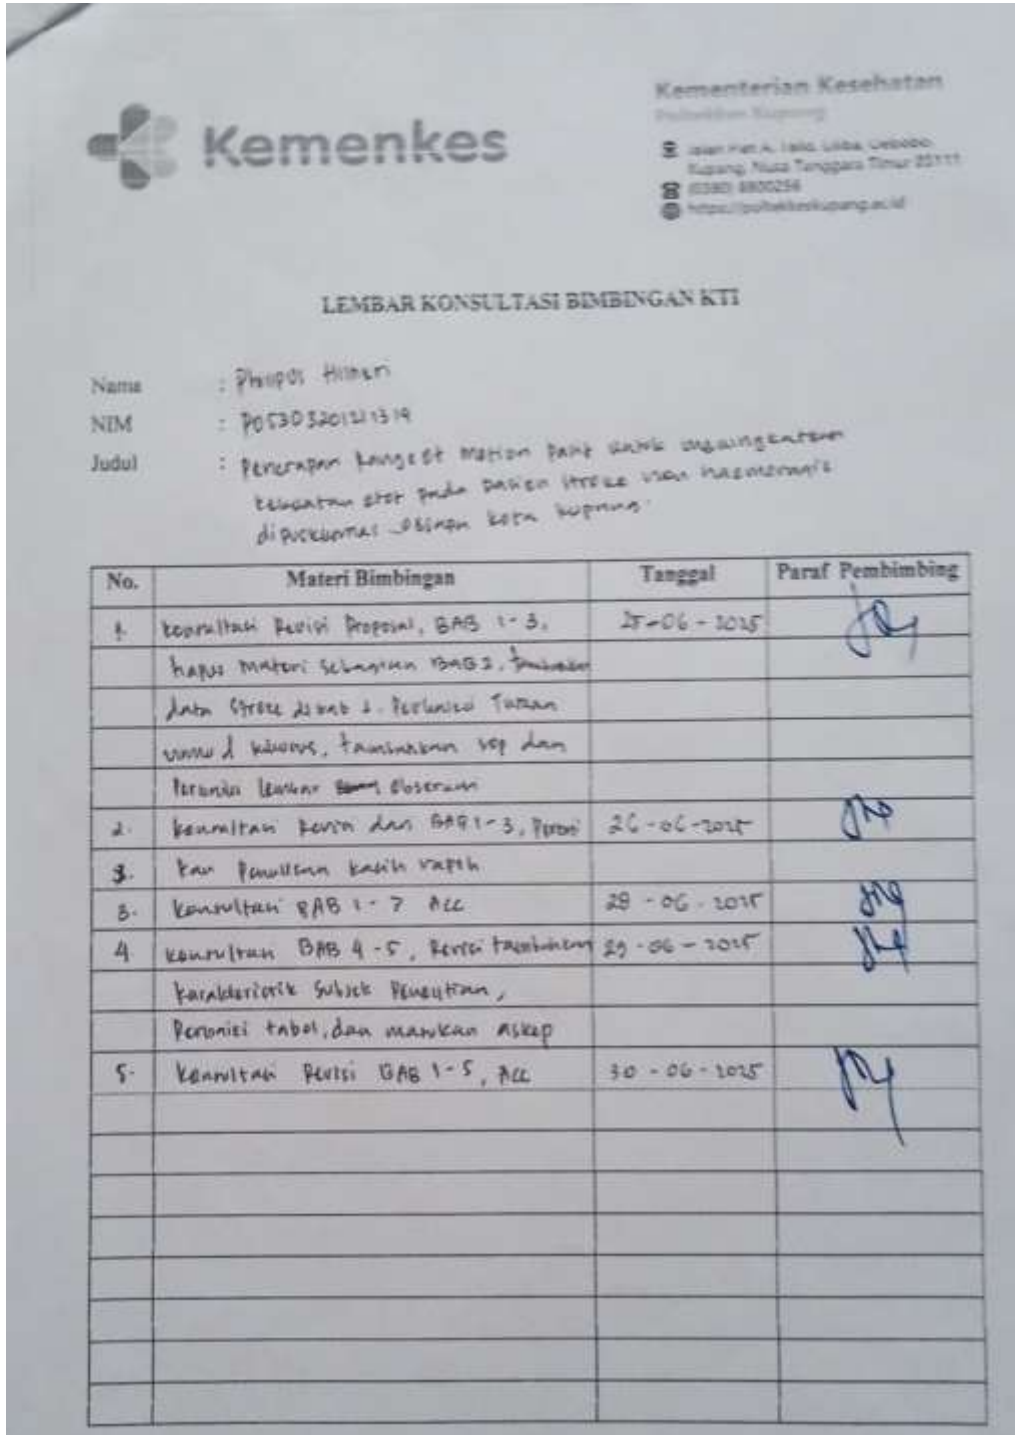 Kementerian Kesehatan
Poltekkes Kupang
Kemenkes
Kupang, Nusa Tenggara Timur 85111
(0380) 8800256
https://poltekkeskupang.ac.id
LEMBAR KONSULTASI BIMBINGAN KTI
Nama :
NIM : PO5303201211319
Judul : Penerapan Range Of Motion Pasif untuk
kekuatan otot pada pasien stroke non haemoragic
di puskesmas kota kupang.
No. Materi Bimbingan Tanggal Paraf Pembimbing
1. konsultasi Revisi Proposal, BAB 1-3, 25-06-2025
hapus materi sebagian BAB 2,
data stroke di bab 1. Perbaiki Tujuan
umum d khusus, tambahkan sop dan
lembar Observasi
2. konsultasi Revisi dan BAB 1-3, 26-06-2025
3. kan Penulisan kasih rapih
3. Konsultasi BAB 1-3 ACC 28-06-2025
4 konsultasi BAB 4-5, Revisi 29-06-2025
karakteristik Subjek Penelitian,
tabel, dan masukan askep
5. Konsultasi Revisi BAB 1-5, ACC 30-06-2025